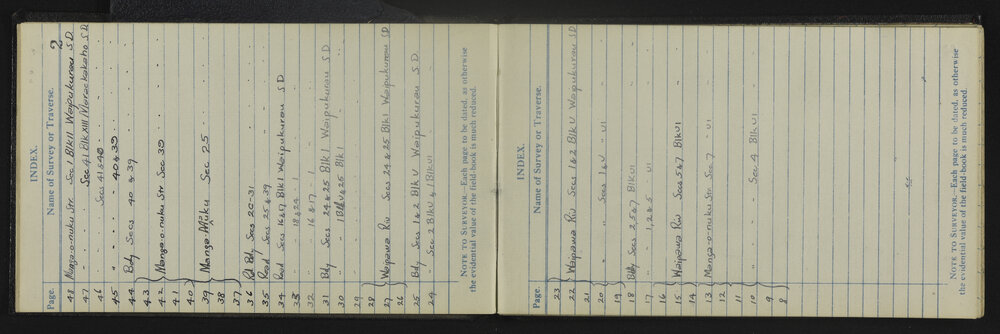 INDEX.
2
Page. Name of Survey or Traverse.
48 Manga-o-nuku Str Sec 1 Blk II Waipukurau S.D.
47 " " Sec 41 Blk XIII Maraekakaho S.D
46 " " Secs 41 & 40
45 " " " 40 & 39
44 Bdy Secs 40 & 39
43
42 Manga-o-nuku Str Sec 39
41
40
39 Manga Nuku Sec 25
38
37
36 Rd Bdy Secs 20-31
35 Road Secs 25 & 39
34 Road Secs 16 & 17 Blk 1 Waipukurau S D
33 " " 18 & 24 " 1
32 " " 16 & 17 " 1
31 Bdy Secs 24 & 25 Blk 1 Waipukurau S D
30 " " 1 Blk U & 25 Blk 1
29
28
27 Waipawa Riv Secs 24 & 25 Blk 1 Waipukurau S D
26
25 Bdy Secs 1 & 2 Blk U Waipukurau S D.
24 " Sec 2 Blk U & 1 Blk U1
NOTE TO SURVEYOR.—Each page to be dated, as otherwise
the evidential value of the field-book is much reduced.
INDEX.
Page. Name of Survey or Traverse.
23
22 Waipawa Riv Secs 1 & 2 Blk U Waipukurau S D
21
20 " " Secs 1 & U " U1
19
18 Bdy Secs 2,5 & 7 Blk U1
17 " " 1,2 & 5 " U1
16
15 Waipawa Riv Secs 5 & 7 Blk U1
14
13 Manga-o-nuku Str Sec 7 " U1
12
11
10 " " Sec 4 Blk U1
9
8
NOTE TO SURVEYOR.—Each page to be dated, as otherwise
the evidential value of the field-book is much reduced.